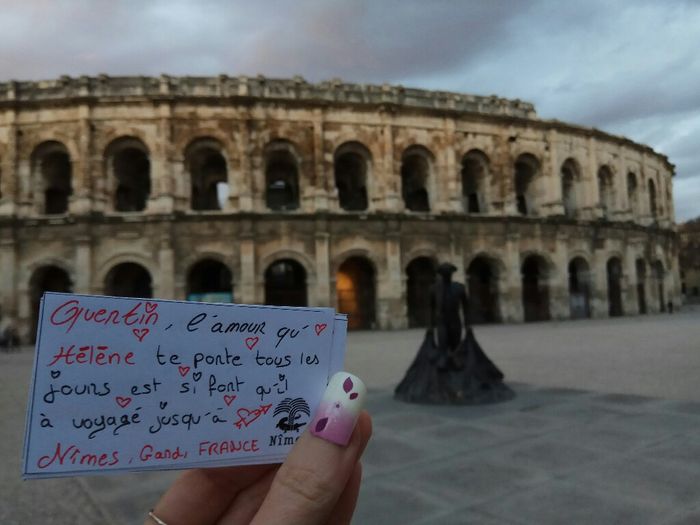 Quentin, l'amour qu'
Hélène te porte tous les
jours est si fort qu'il
à voyagé jusqu'à
Nîmes, Gard, FRANCE
Nîm